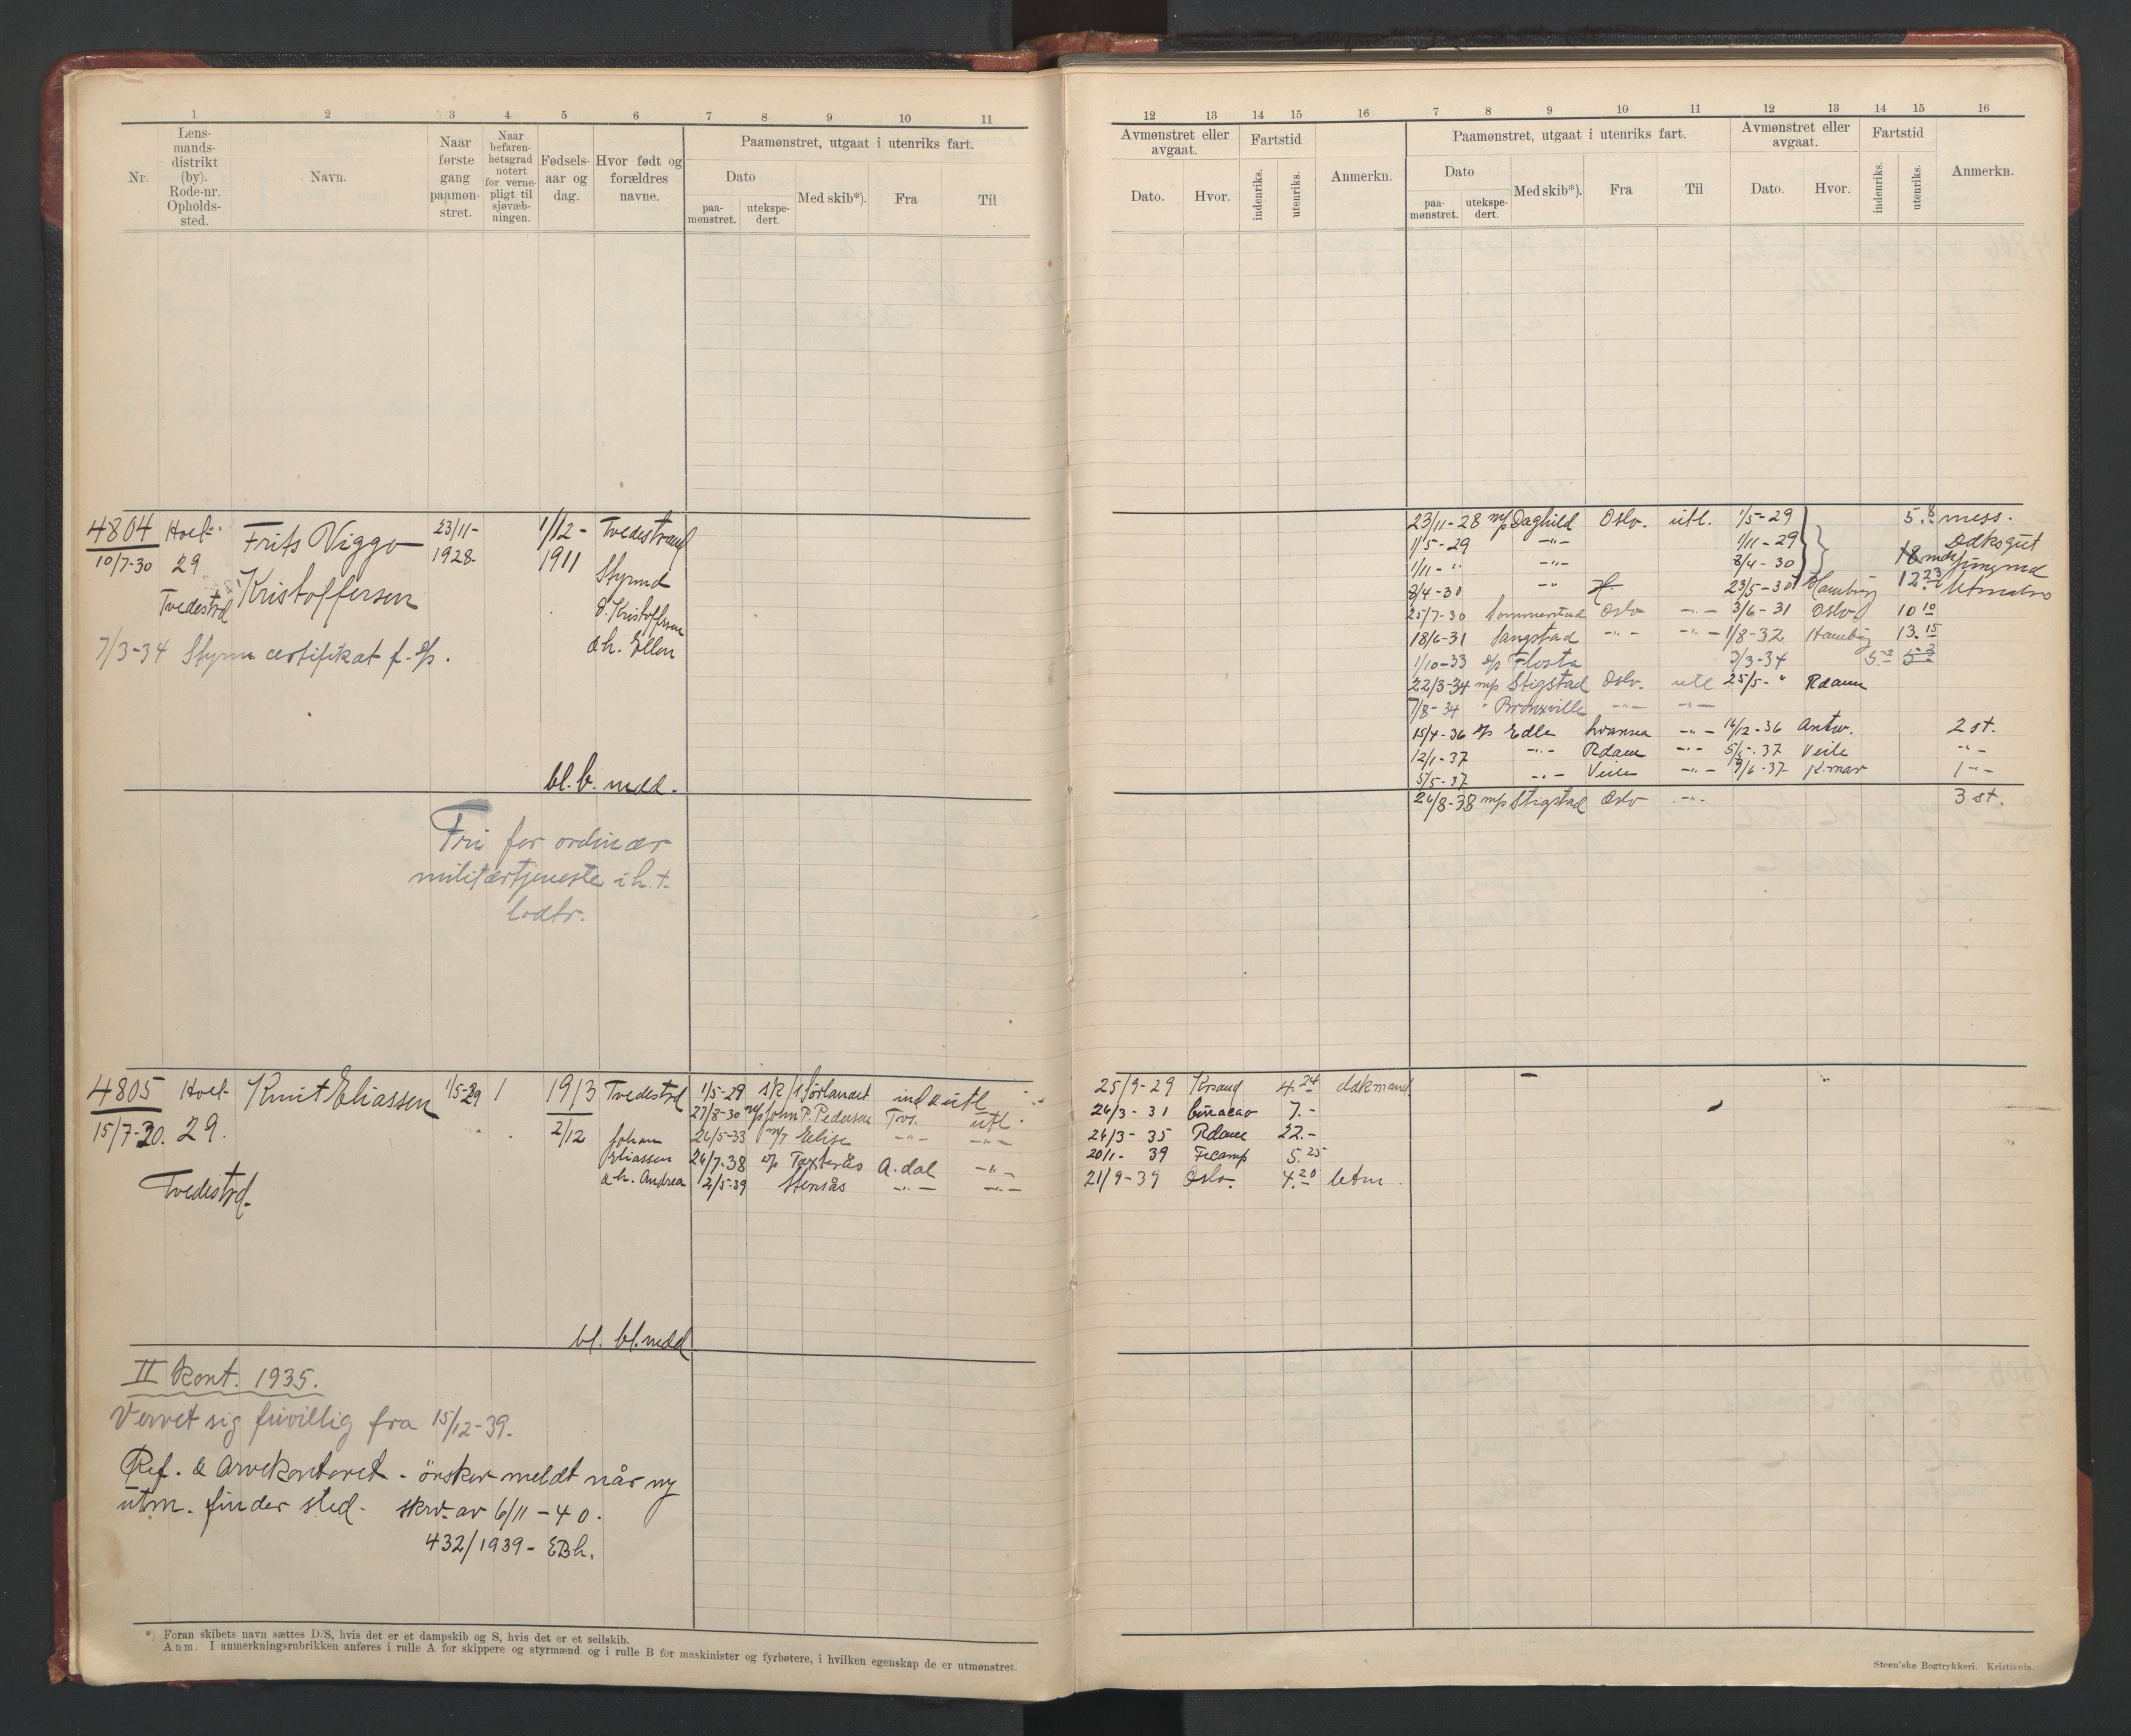 1 2 3 4 5 6 7 8 9 10 11
Nr.
Lens-
mands-
distrikt
(by).
Rode-nr.
Opholds-
sted.
Navn.
Naar
første
gang
paamøn-
stret.
Naar
befaren-
hetsgrad
notert
for verne-
pligt til
sjøvæb-
ningen.
Fødsels-
aar og
dag.
Hvor født og
forældres
navne.
Paamønstret, utgaat i utenriks fart.
Dato
paa-
mønstret.
utekspe-
dert.
Med skib*).
Fra
Til
4804 Holt- Frits Viggo 23/11- 1/12- Tvedestrand
10/7-30 29 Kristoffersen 1928- 1911 Styrmd
Tvedestrd O. Kristoffersen
7/3-34 Styrm certifikat f. d/s. & h. Ellen
bl. b. mdd.
Fri for ordinær
militærtjeneste i h. t.
lodtr.
4805 Holt- Knut Eliassen 1/5-29 1 1913 Tvedestrd 1/5-29 sk/s Sørlandet ind & utl
15/7-30. 29. 2/12 27/8-30 m/s John P. Pedersen Tvs. utl.
Johan 26/5-33 m/T Elise -"- -"-
Eliassen 26/7-38 d/s Taxterås A.dal -"-
Tvedestrd. & h. Andrea 12/5-39 Stensås -"- -"-
bl. bl. mdd
II kont. 1935.
Vervet sig frivillig fra 15/12-39.
Ref. & Arvekontoret - ønsker meldt når ny
utm. finder sted. skr. av 6/11-40.
432/1939- EBh.
*) Foran skibets navn sættes D/S, hvis det er et dampskib og S, hvis det er et seilskib.
Anm. I anmerkningsrubrikken anføres i rulle A for skippere og styrmænd og i rulle B for maskinister og fyrbøtere, i hvilken egenskap de er utmønstret.
12 13 14 15 16 7 8 9 10 11 12 13 14 15 16
Avmønstret eller
avgaat.
Dato. Hvor.
Fartstid
indenriks.
utenriks.
Anmerkn.
Paamønstret, utgaat i utenriks fart.
Dato
paa-
mønstret.
utekspe-
dert.
Med skib*).
Fra
Til
Avmønstret eller
avgaat.
Dato. Hvor.
Fartstid
indenriks.
utenriks.
Anmerkn.
23/11-28 m/s Daghild Oslo. utl. 1/5-29 5.8 mess.
1/5-29 -"- 1/11-29 Dæksgut
1/11-" -"- 8/4-30 jungmd
8/4-30 -"- 23/5-30 Hamburg 12.23 letmatro
25/7-30 Sommerstad Oslo -"- 3/6-31 Oslo 10 10
18/6-31 Sangstad -"- -"- 1/8-32 Hamburg 13.15
1/10-33 d/s Flosta 3/3-34 5.2 5.3
22/3-34 m/s Stigstad Oslo. utl 25/5-" Rdam
7/8-34 " Bronxville -"- -"-
15/4-36 d/s Edle Svansea -"- 16/12-36 Antw. 2 st.
12/1-37 -"- Rdam -"- 5/5-37 Veile -"-
5/5-37 -"- Veile -"- 9/6-37 K.mar 1 -"-
26/8-38 m/s Stigstad Oslo -"- 3 st.
25/9-29 Krsand 4.24 dækmand
26/3-31 Curacao 7.-
26/3-35 Rdam 22.-
20/1-39 Fecamp 5.25
21/9-39 Oslo. 4.20 letm.
Steen'ske Bogtrykkeri. Kristiania.